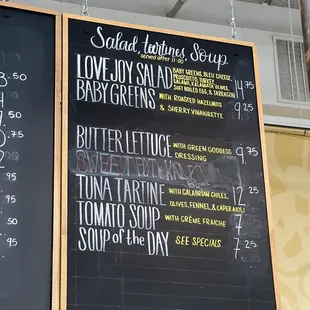 Salad, tartines, Soup
served after 11:00
LOVEJOY SALAD BABY GREENS, BLEU CHEESE, 14.75
PROSCIUTTO, TURKEY,
SALAMI, KALAMATA OLIVES,
SOFT BOILED EGG, & TARRAGON
BABY GREENS WITH ROASTED HAZELNUTS 9.25
& SHERRY VINAIGRETTE
BUTTER LETTUCE WITH GREEN GODDESS 9.75
DRESSING
TUNA TARTINE WITH CALABRIAN CHILES, 12
OLIVES, FENNEL, & CAPER AIOLI
TOMATO SOUP WITH CRÈME FRAICHE 7
SOUP of the DAY SEE SPECIALS 7.25
3.50
.50
.75
.95
.95
.95
.95